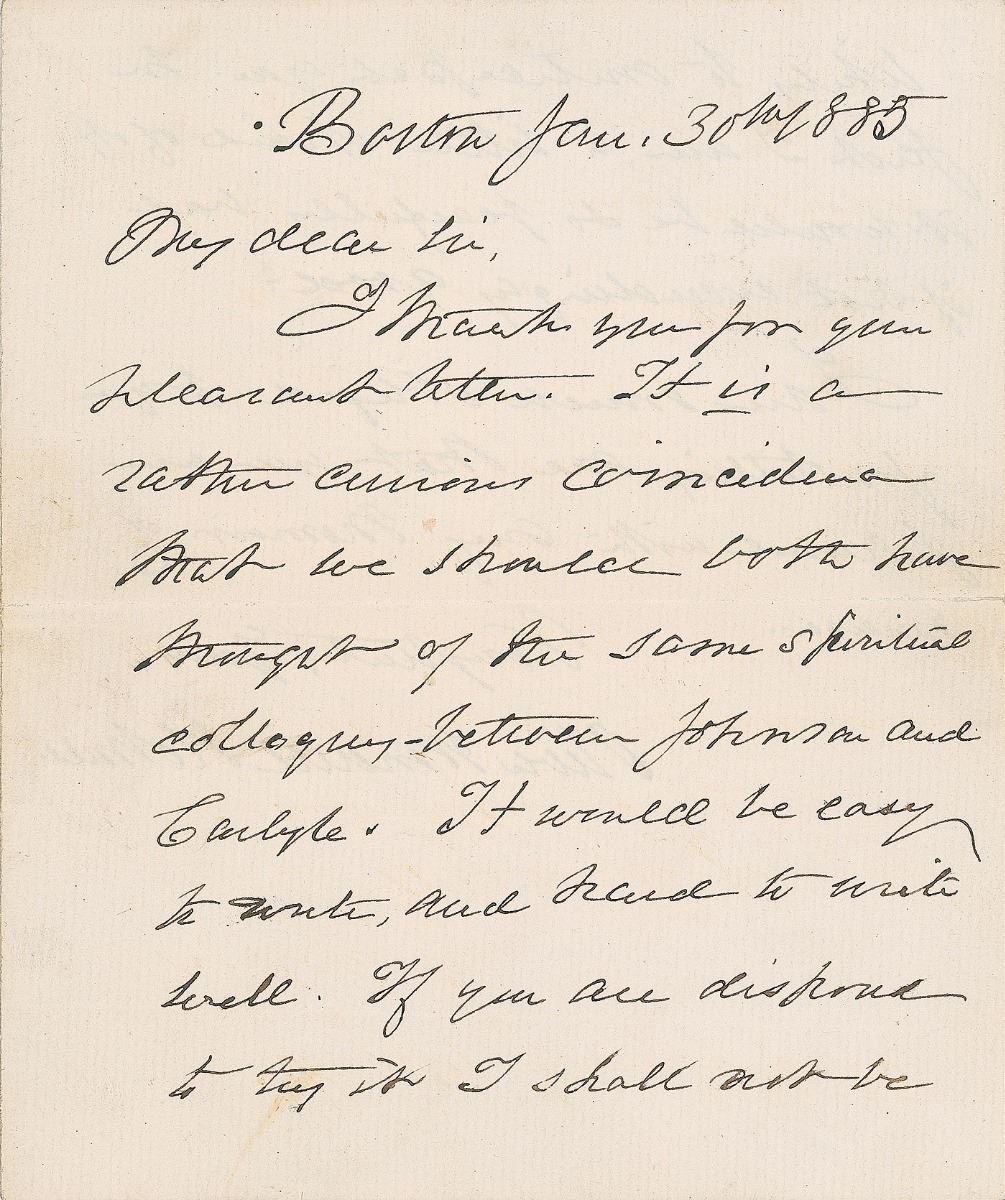 Boston Jan. 30th 1885
My dear Sir,
I thank you for your
pleasant letter. It is a
rather curious coincidence
that we should both have
thought of the same spiritual
colloquy - between Johnson and
Carlyle. It would be easy
to write, and hard to write
well. If you are disposed
to try it I shall not be